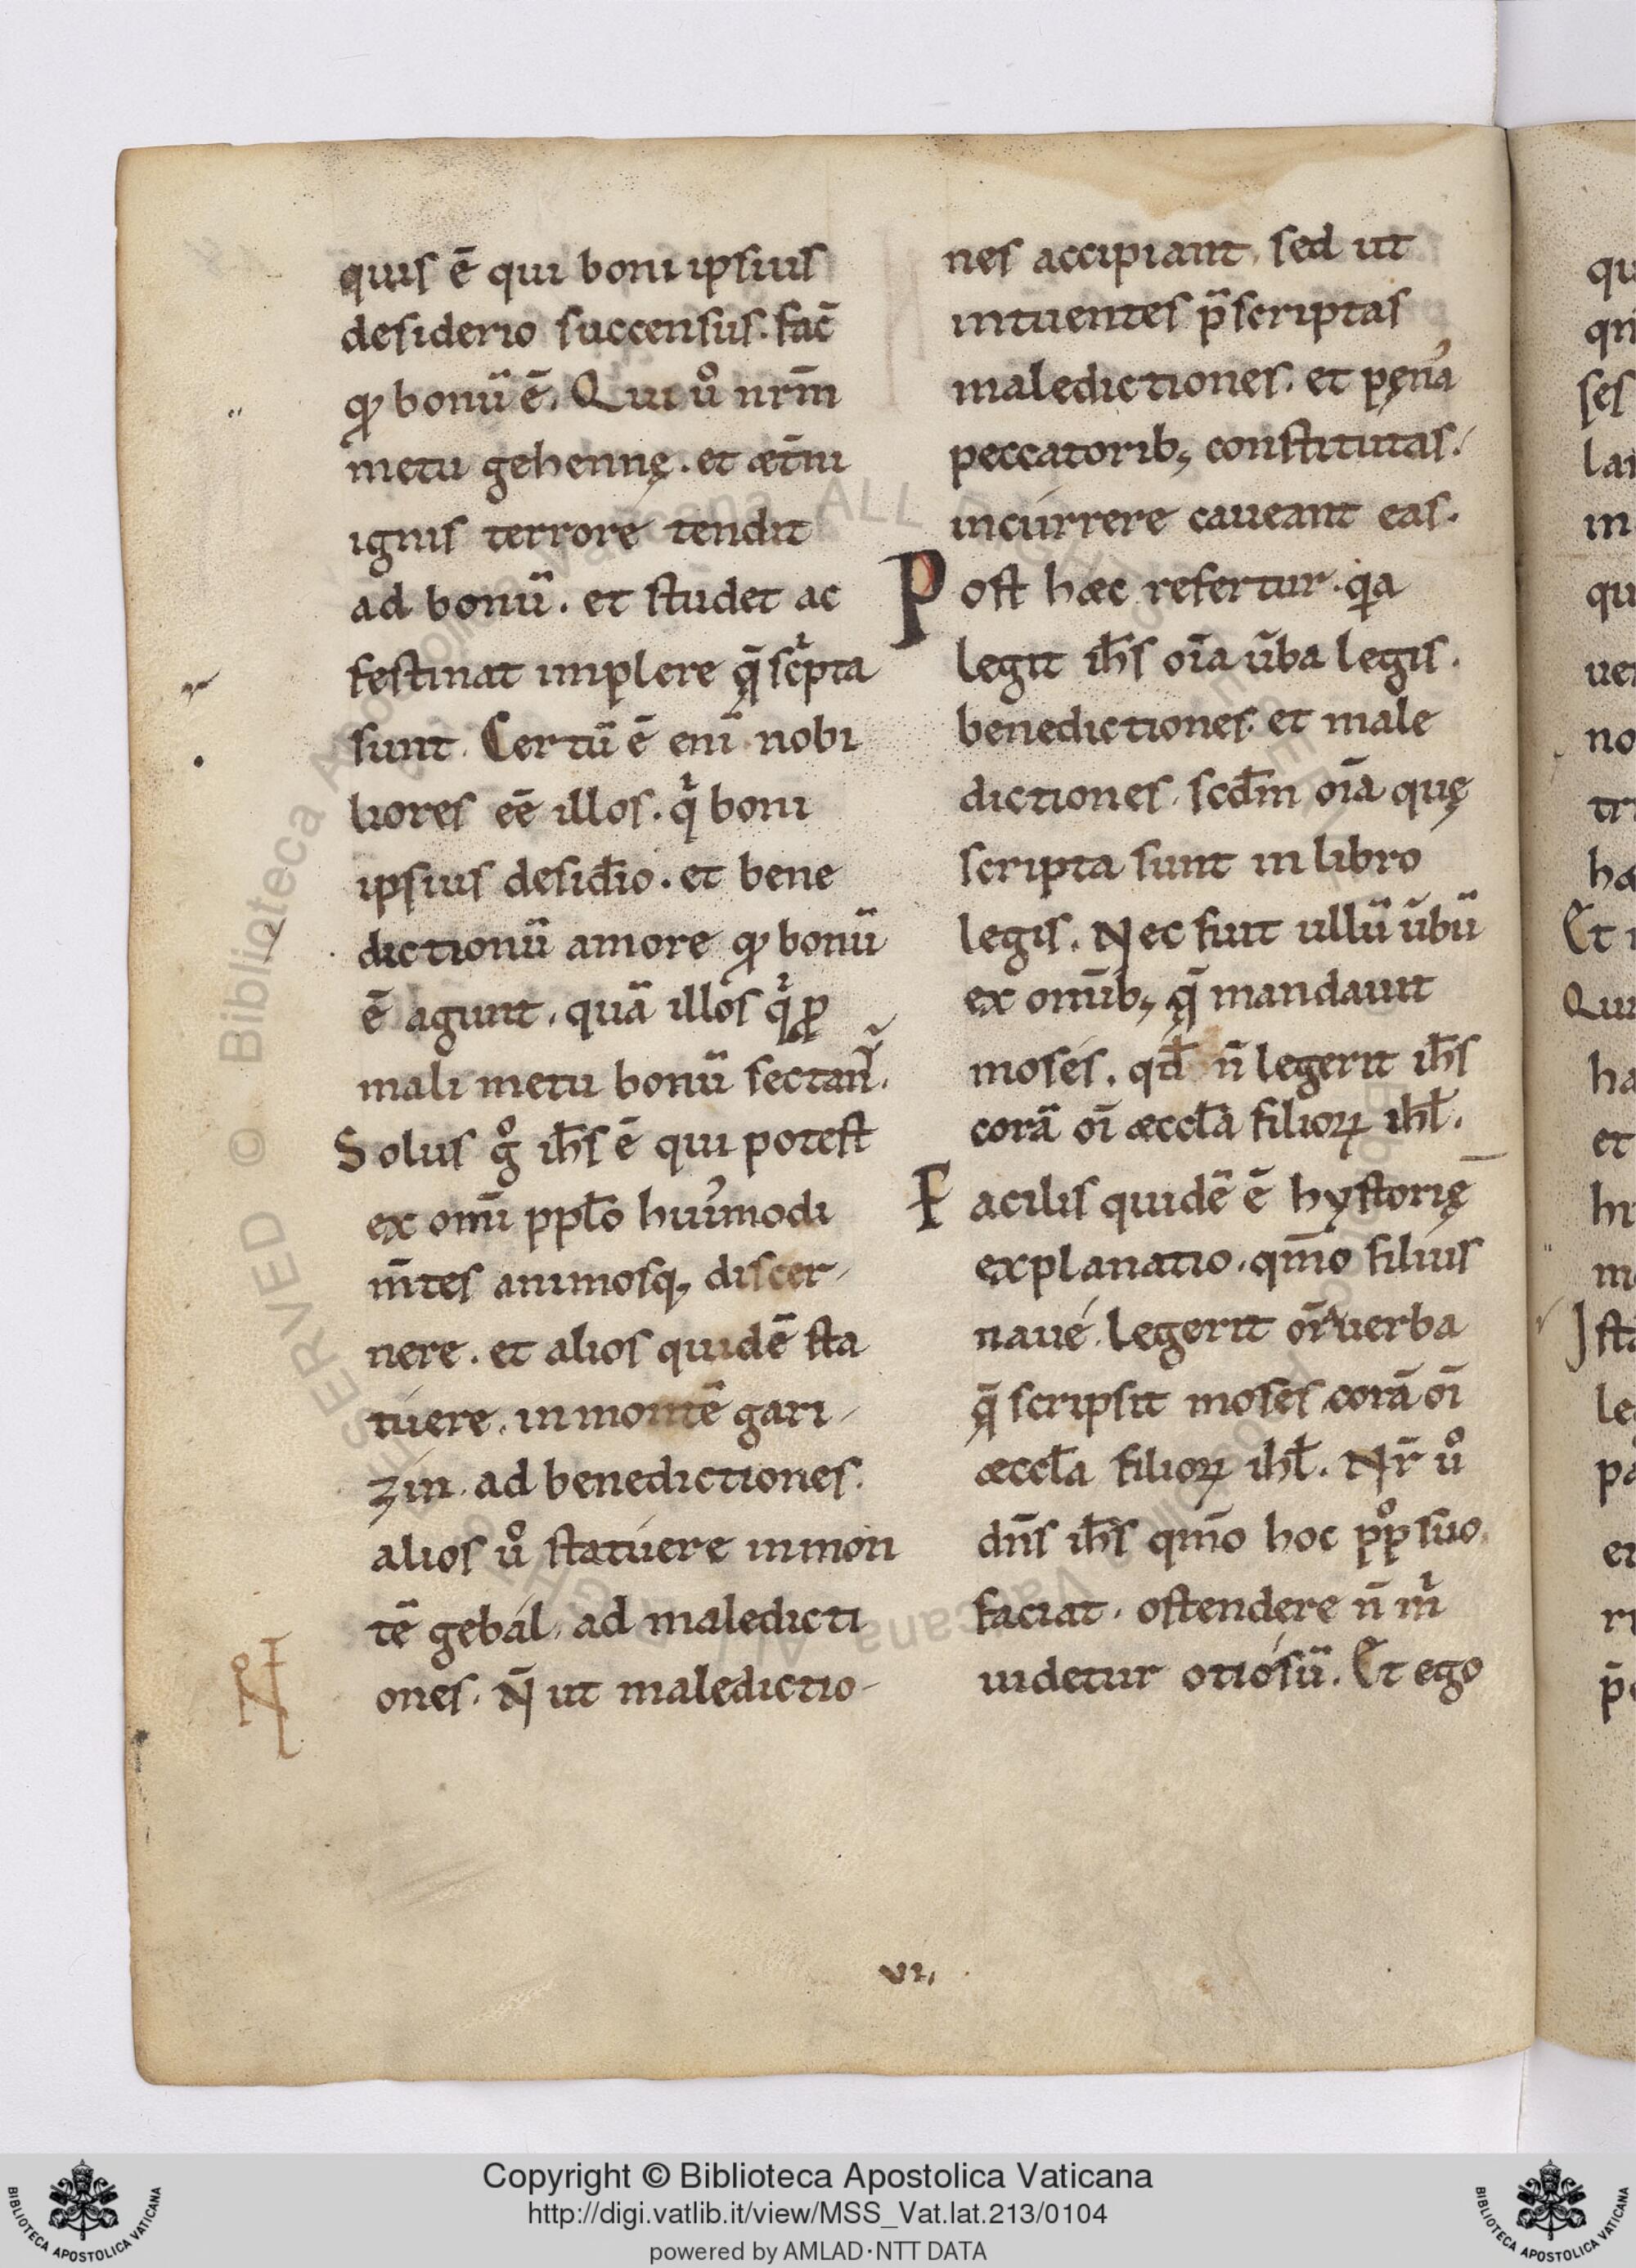 quis ē qui boni ipsius
desiderio succensus. fac̄
qͩ bonū ē. Qui ů nr̄m
metu gehennę. et ætn̄i
ignis terrore tendit
ad bonū. et studet ac
festinat implere q̄ scͥpta
sunt. Certū ē enī nobi
liores eē illos. qͥ boni
ipsius desid̄io. et bene
dictionū amore qͩ bonū
ē agunt. quā illos qͥ ꝓ
mali metu bonū sectanr̄.
Solus g̊ ih̄s ē qui potest
ex omī ppl̄o hui᾽modi
m̄tes animosq; discer-
nere. et alios quidē sta
tuere. in montē gari-
zin. ad benedictiones.
alios ů statuere in mon
tē gebal. ad maledicti
ones. N̄ ut maledictio-
nes accipiant. sed ut
intuentes p̄scriptas
maledictiones. et pęna᾽
peccatorib; constitutas.
incurrere caueant eas.
Post hæc refertur. qͥa
legit ih̄s oīa ūba legis.
benedictiones et male
dictiones. scd̄m oīa quę
scripta sunt in libro
legis. Nec fuit ullū ūbū
ex omīb; q̄ mandauit
moses. qd̄ n̄ legerit ih̄s
corā oī æccl̄a filioꝝ ihl̄.
Facilis quidē ē hystorię
explanatio. qm̄o filius
naue legerit oīa uerba
q̄ scripsit moses corā oī
æccl̄a filioꝝ ihl̄. Nr̄ ů
dn̄s ih̄s qm̄o hoc pp̊ suo
faciat. ostendere n̄ mͥ
uidetur otiosū. Et ego
VI.
Copyright © Biblioteca Apostolica Vaticana
http://digi.vatlib.it/view/MSS_Vat.lat.213/0104
powered by AMLAD·NTT DATA
BIBLIOTECA APOSTOLICA VATICANA
BIBLIOTECA APOSTOLICA VATICANA